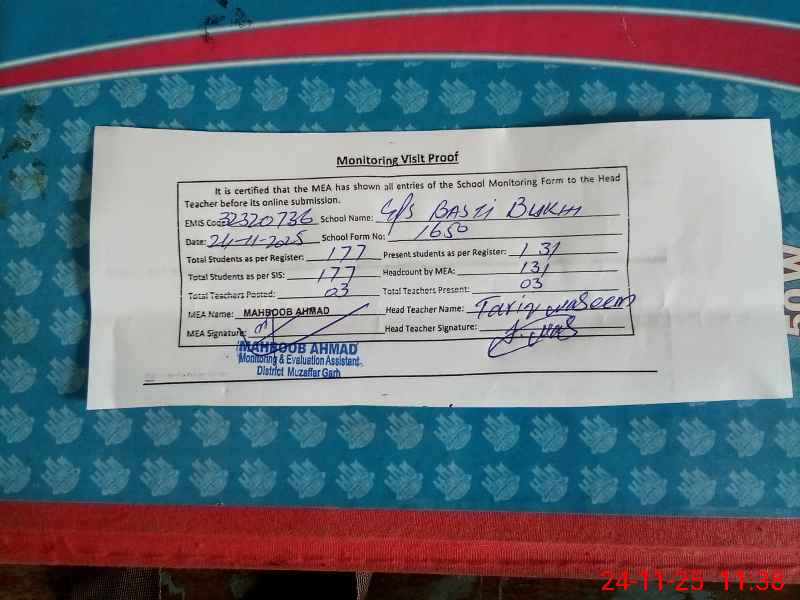 Monitoring Visit Proof
It is certified that the MEA has shown all entries of the School Monitoring Form to the Head
Teacher before its online submission.
EMIS Code: 32320736 School Name: G/S BASTI BUKHI
Date: 24-11-2025 School Form No: 1650
Total Students as per Register: 177 Present students as per Register: 131
Total Students as per SIS: 177 Headcount by MEA: 131
Total Teachers Posted: 03 Total Teachers Present: 03
MEA Name: MAHBOOB AHMAD Head Teacher Name: Tariq Waseem
MEA Signature: Head Teacher Signature:
MAHBOOB AHMAD
Monitoring & Evaluation Assistant
District Muzaffar Garh
50 W
24-11-25 11:38